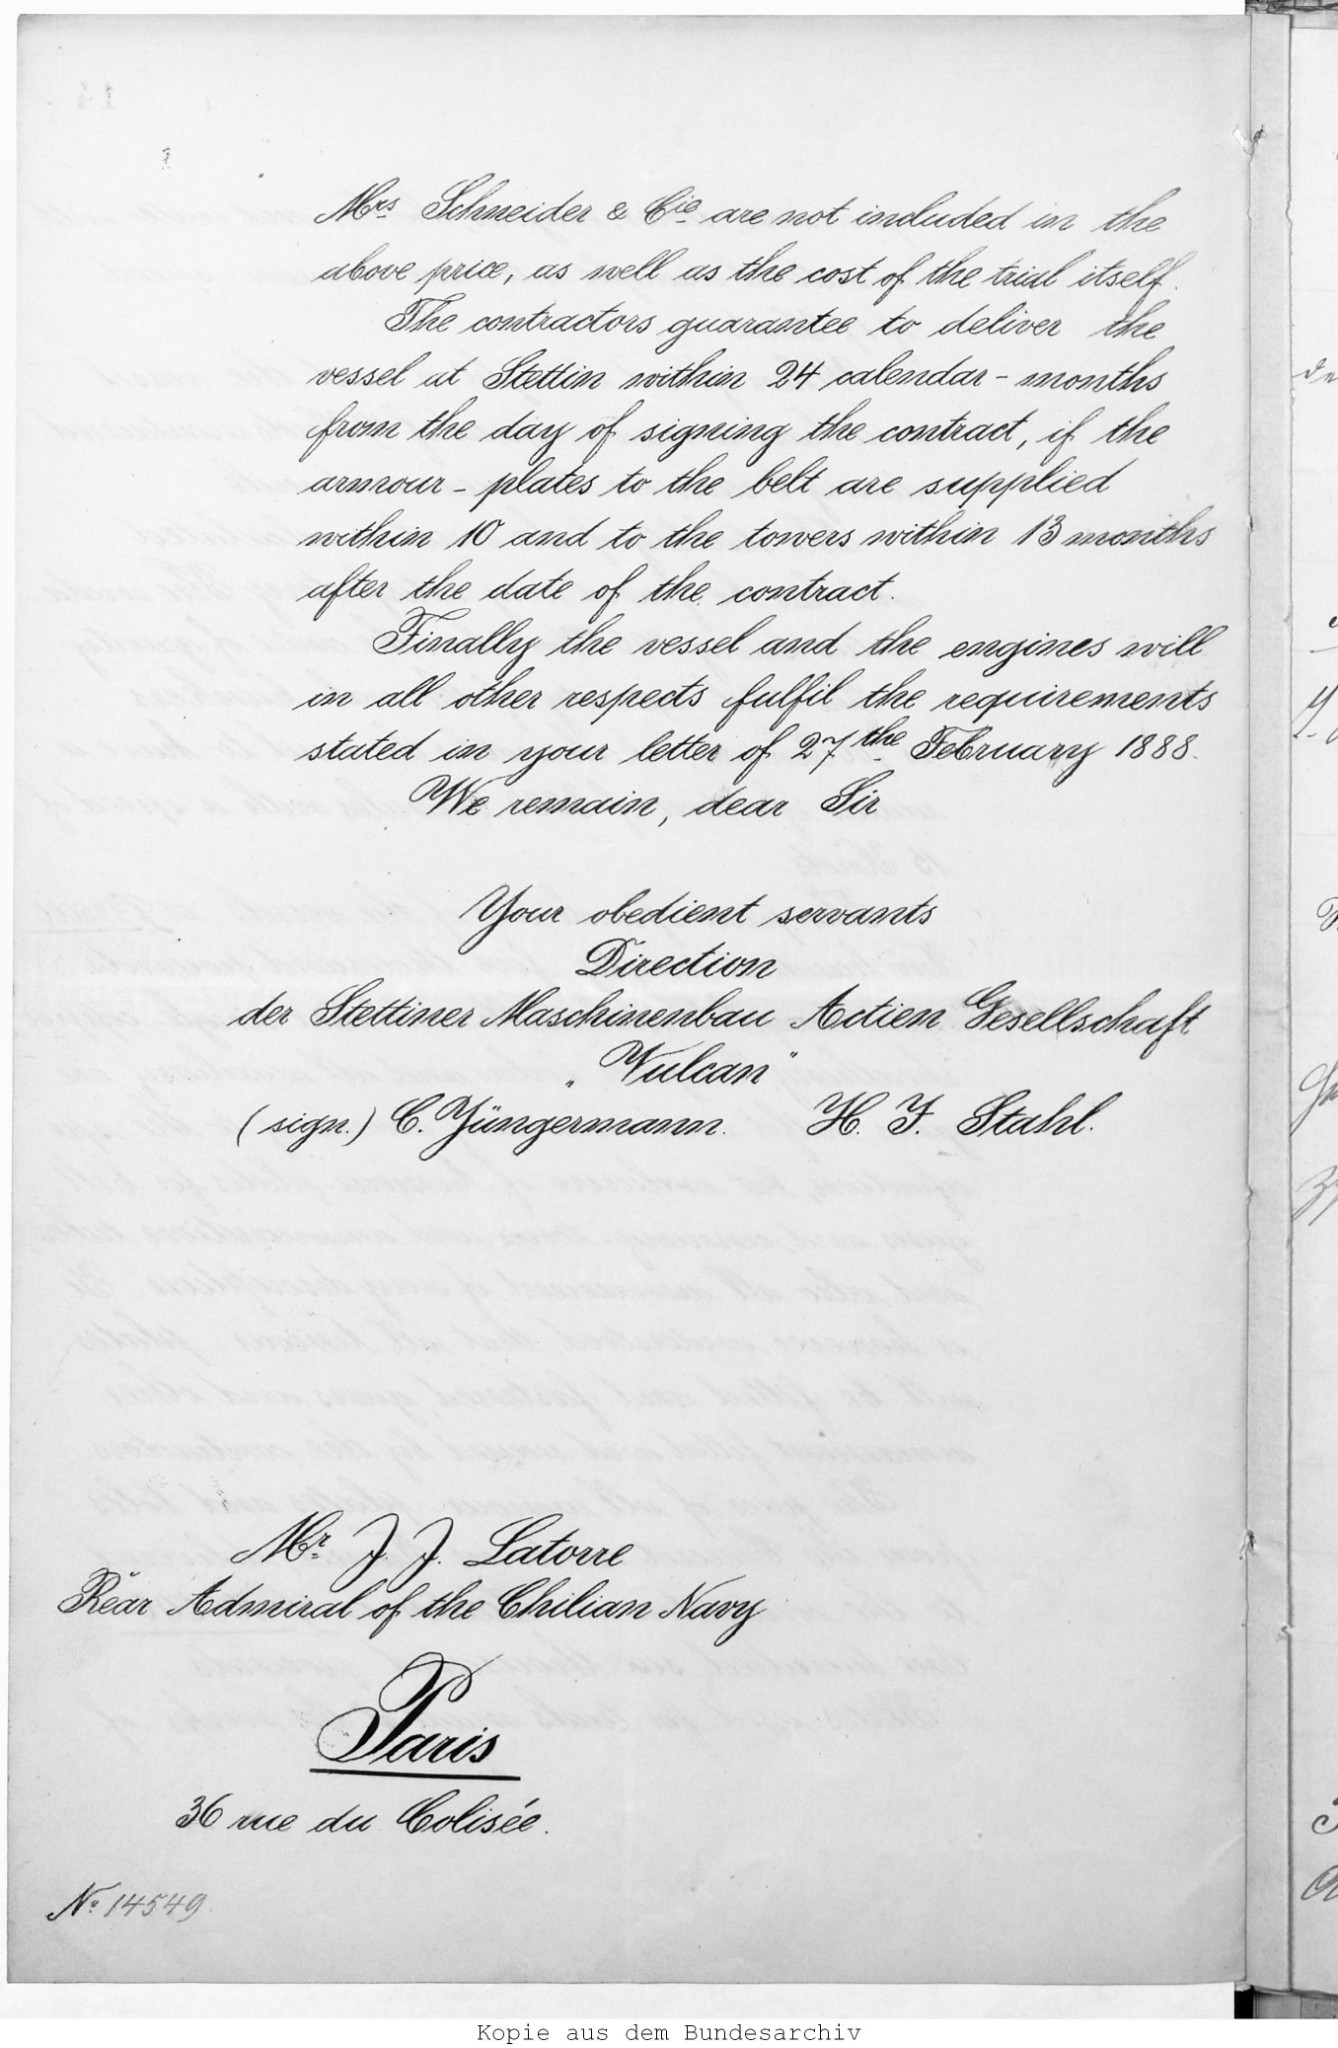 Mrs Schneider & Cie are not included in the
above price, as well as the cost of the trial itself.
The contractors guarantee to deliver the
vessel at Stettin within 24 calendar - months
from the day of signing the contract, if the
armour - plates to the belt are supplied
within 10 and to the towers within 13 months
after the date of the contract.
Finally the vessel and the engines will
in all other respects fulfil the requirements
stated in your letter of 27the February 1888.
We remain, dear Sir
Your obedient servants
Direction
der Stettiner Maschinenbau Actien Gesellschaft
„Vulcan"
(sign.) C. Jüngermann. H. F. Stahl.
Mr J. J. Latorre
Rear Admiral of the Chilian Navy
Paris
36 rue du Colisée.
No 14549.
Kopie aus dem Bundesarchiv